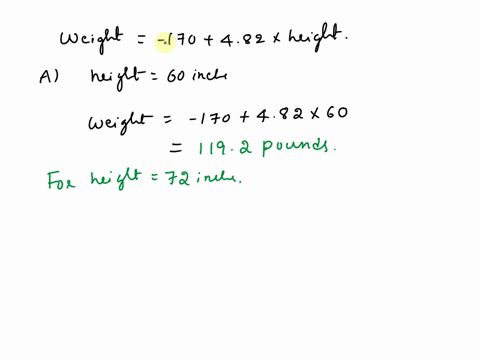 Weight = -170 + 4.82 x height.
A) height = 60 inch
Weight = -170 + 4.82 x 60
= 119.2 pounds.
For height = 72 inch.